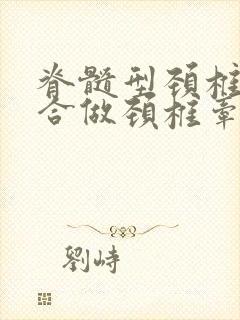 脊髓型颈椎
合做颈椎牵
劉峙